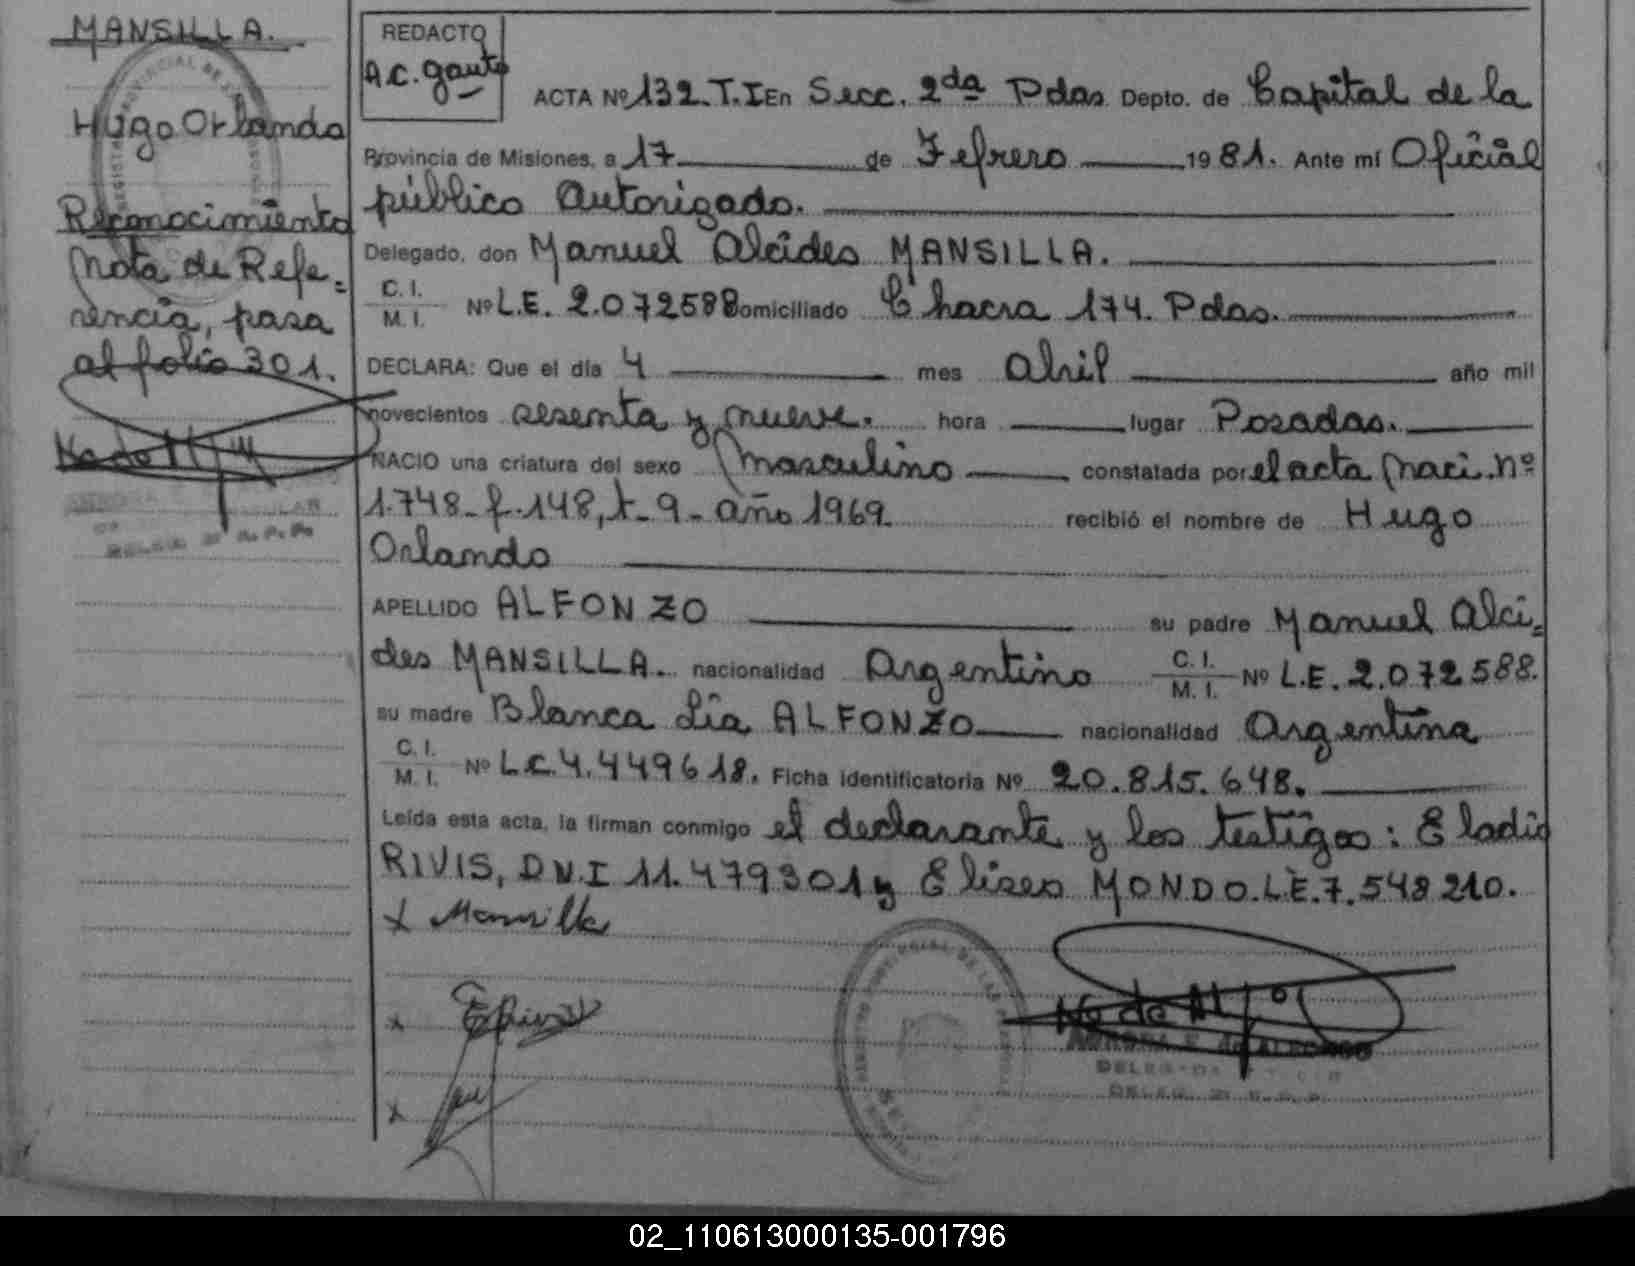 MANSILLA.
Hugo Orlando
Reconocimiento
Nota de Refe=
rencia, pasa
al folio 301.
REDACTO
A.C. Gauto
ACTA Nº 132. T. I En Secc. 2da Pdas Depto. de Capital de la
Provincia de Misiones, a 17 de Febrero 1981. Ante mí Oficial
público Autorizado.
Delegado, don Manuel Alcides MANSILLA.
C. I.
M. I. Nº L.E. 2.072588 Domiciliado Chacra 174. Pdas.
DECLARA: Que el día 4 mes Abril año mil
novecientos sesenta y nueve. hora lugar Posadas.
NACIO una criatura del sexo Masculino constatada por el acta Naci. nº
1.748- f. 148, t- 9- año 1969 recibió el nombre de Hugo
Orlando
APELLIDO ALFONZO su padre Manuel Alci=
des MANSILLA. nacionalidad Argentino C. I.
M. I. Nº L.E. 2.072588.
su madre Blanca Lía ALFONZO nacionalidad Argentina
C. I.
M. I. Nº L.C. 4.449618. Ficha identificatoria Nº 20.815.648.
Leída esta acta, la firman conmigo el declarante y los testigos: Eladio
RIVIS, D.N.I 11.479301 y Eliseo MONDO. L.E. 7.548210.
x Mansilla
x
x
02_110613000135-001796